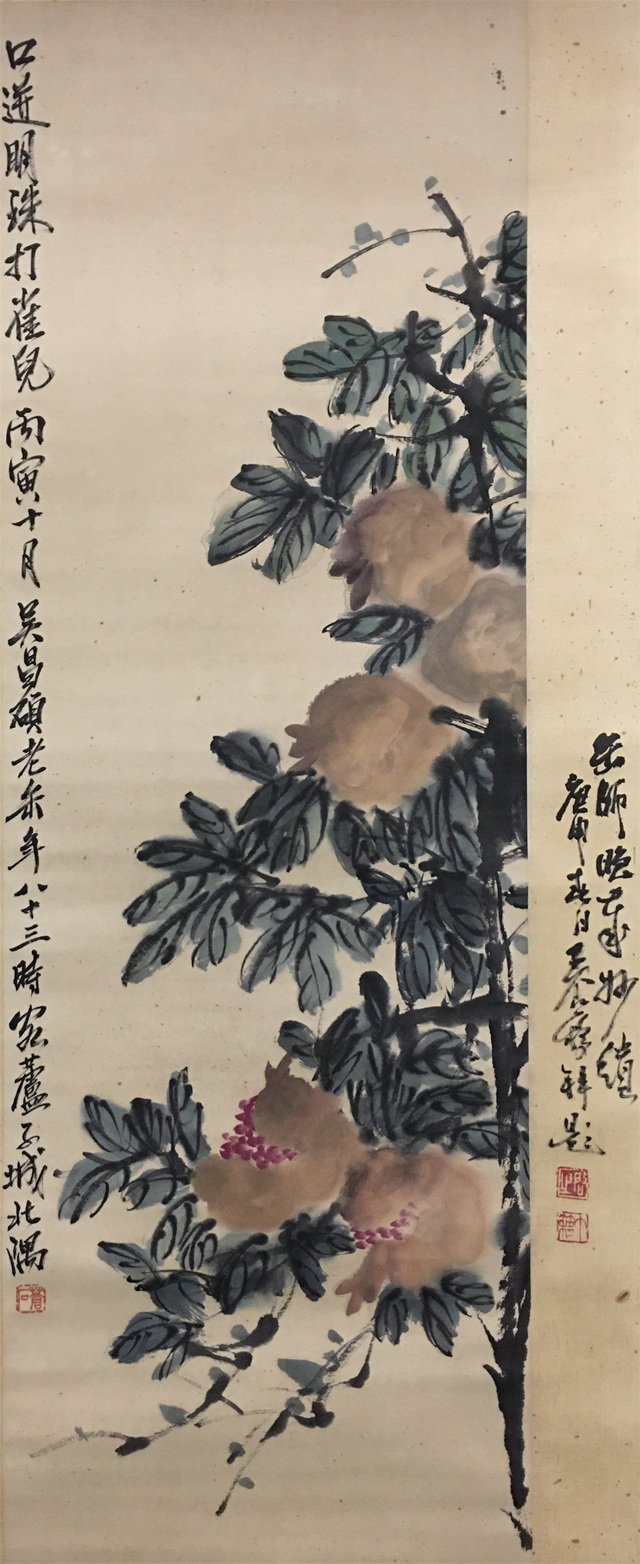 缶師晚年妙繢
庚申春日王个簃拜題
口迸明珠打雀兒 丙寅十月 吳昌碩老缶年八十三時客蘆子城北隅